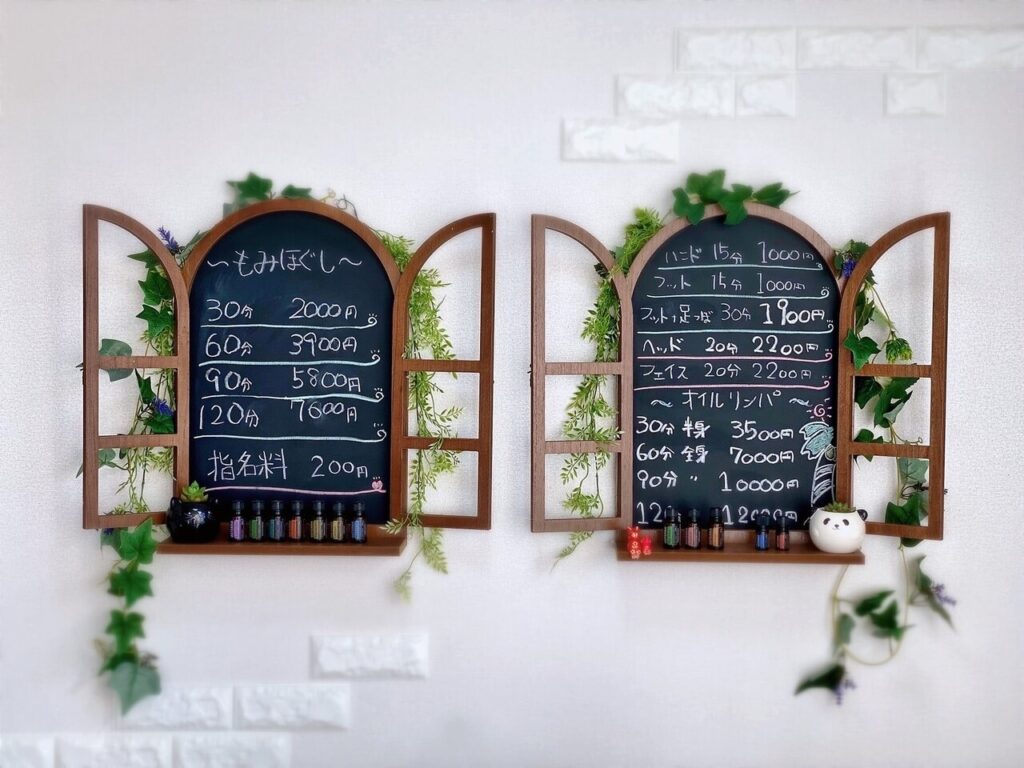 ～もみほぐし～
30分 2000円
60分 3900円
90分 5800円
120分 7600円
指名料 200円
ハンド 15分 1000円
フット 15分 1000円
フット,足つぼ 30分 1900円
ヘッド 20分 2200円
フェイス 20分 2200円
～オイルリンパ～
30分 半身 3500円
60分 全身 7000円
90分 〃 10000円